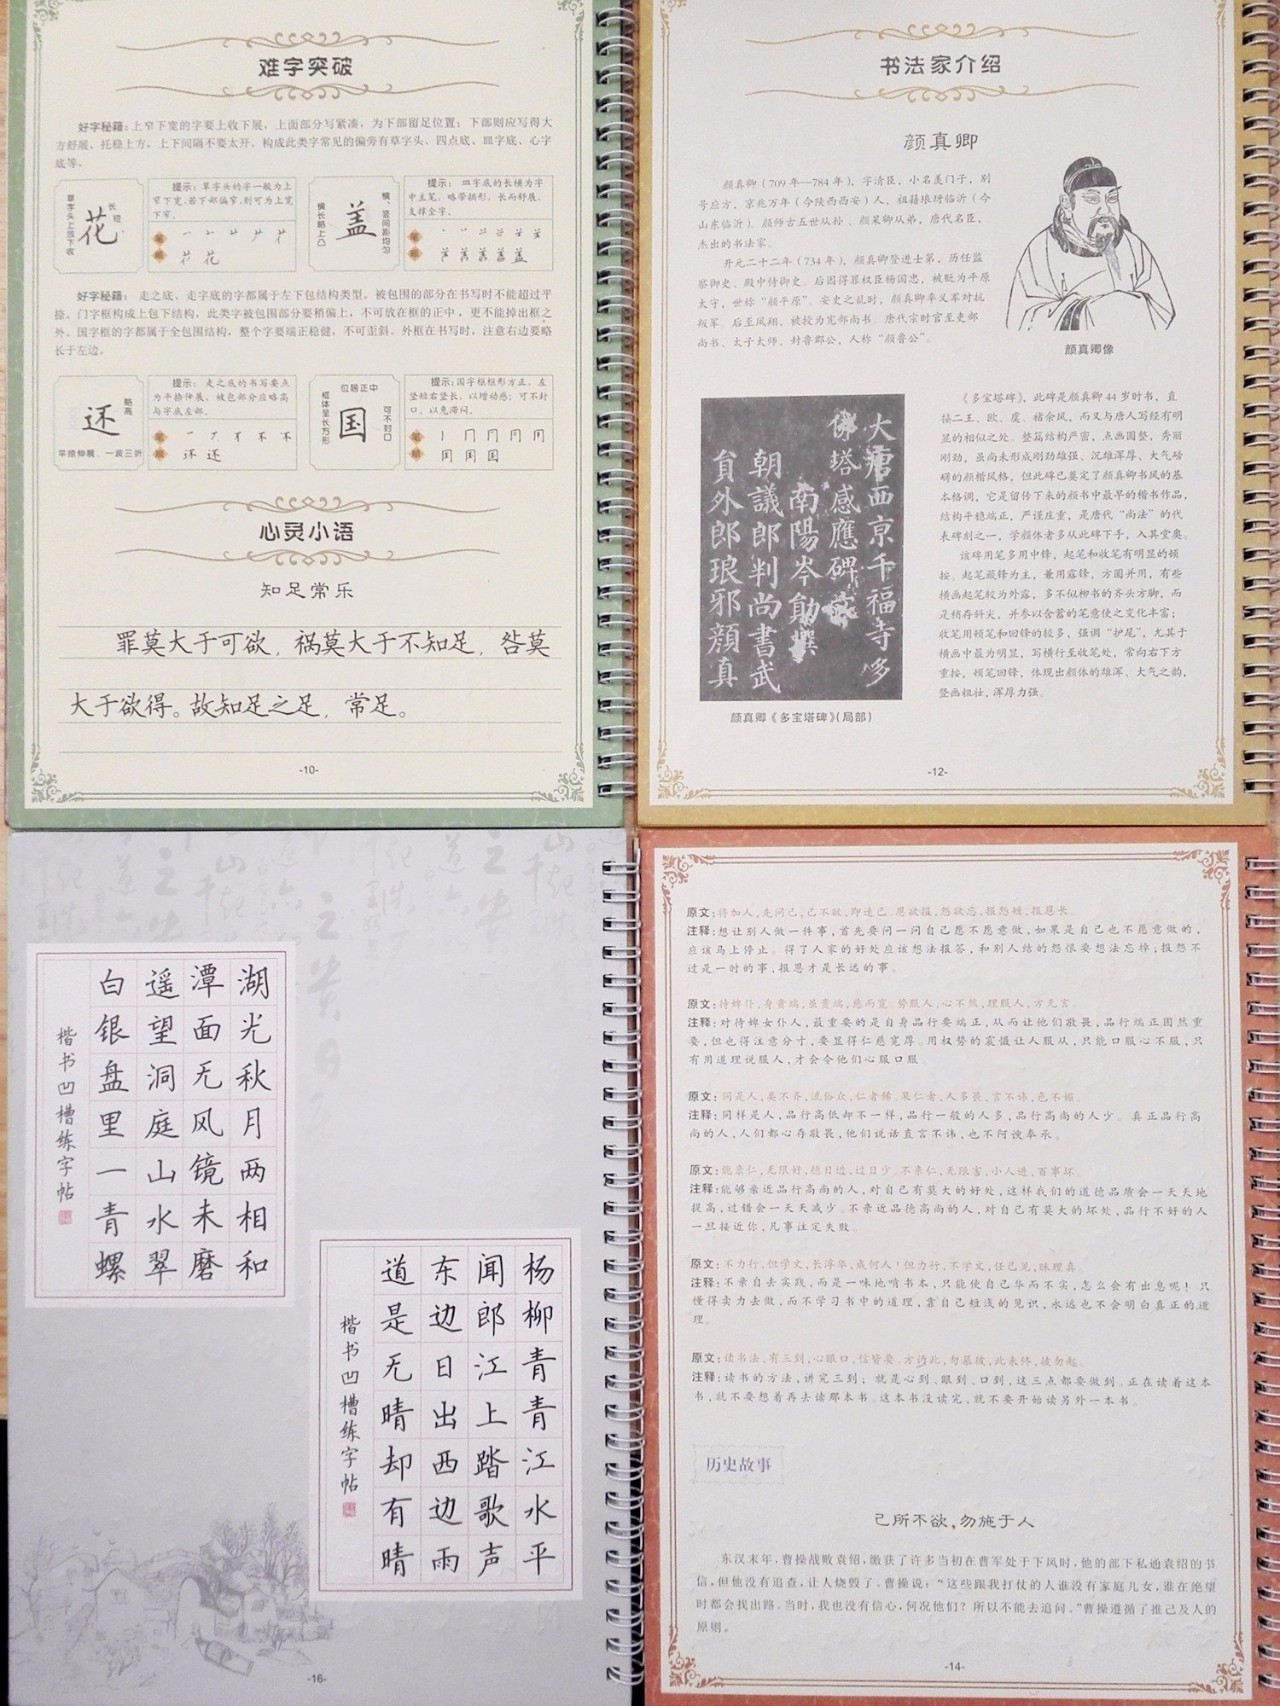 难字突破
好字秘籍：上窄下宽的字要上收下展，上面部分写紧凑，为下部留足位置；下部则应写得大
方舒展，托稳上方，上下间隔不要太开。构成此类字常见的偏旁有草字头、四点底、皿字底、心字
底等。
草字头上放下收
花
长
短
提示：草字头的字一般为上
窄下宽，若下部偏窄，则可为上宽
下窄。
笔顺
花
横长略上凸
盖
横、竖间距均匀
提示：皿字底的长横为字
中主笔，略带拱形，长而舒展，
支撑全字。
笔顺
盖
好字秘籍：走之底、走字底的字都属于左下包结构类型，被包围的部分在书写时不能超过平
捺。门字框构成上包下结构，此类字被包围部分要稍偏上，不可放在框的正中，更不能掉出框之
外。国字框的字都属于全包围结构，整个字要端正稳健，不可歪斜。外框在书写时，注意右边要略
长于左边。
还
略高
平捺伸展，一波三折
提示：走之底的书写要点
为平捺伸展，被包部分应略高
与字底左部。
笔顺
还
位居正中
框体呈长方形
国
可不封口
提示：国字框框形方正，左
竖短右竖长，以增动感；可不封
口，以免滞闷。
笔顺
国
心灵小语
知足常乐
罪莫大于可欲，祸莫大于不知足，咎莫
大于欲得。故知足之足，常足。
-10-
书法家介绍
颜真卿
颜真卿（709年—784年），字清臣，小名羡门子，别
号应方，京兆万年（今陕西西安）人，祖籍琅玡临沂（今
山东临沂）。颜师古五世从孙、颜杲卿从弟，唐代名臣，
杰出的书法家。
开元二十二年（734年），颜真卿登进士第，历任监
察御史、殿中侍御史。后因得罪权臣杨国忠，被贬为平原
太守，世称“颜平原”。安史之乱时，颜真卿率义军对抗
叛军。后至凤翔，被授为宪部尚书。唐代宗时官至吏部
尚书、太子太师，封鲁郡公，人称“颜鲁公”。
颜真卿像
大唐西京千福寺多
佛塔感應碑文
南陽岑勛撰
朝議郎判尚書武
貟外郎琅邪顔真
颜真卿《多宝塔碑》（局部）
《多宝塔碑》，此碑是颜真卿44岁时书，直
接二王、欧、虞、褚余风，而又与唐人写经有明
显的相似之处。整篇结构严密，点画圆整，秀丽
刚劲，虽尚未形成刚劲雄强、沉雄浑厚、大气磅
礴的颜楷风格，但此碑已奠定了颜真卿书风的基
本格调，它是留传下来的颜书中最早的楷书作品，
结构平稳端正，严谨庄重，是唐代“尚法”的代
表碑刻之一，学颜体者多从此碑下手，入其堂奥。
该碑用笔多用中锋，起笔和收笔有明显的顿
按。起笔藏锋为主，兼用露锋，方圆并用，有些
横画起笔较为外露，多不似柳书的齐头方脚，而
是稍存斜尖，并参以含蓄的笔意使之变化丰富；
收笔用顿笔和回锋的较多，强调“护尾”，尤其于
横画中最为明显，写横行至收笔处，常向右下方
重按，顿笔回锋，体现出颜体的雄浑、大气之韵，
竖画粗壮，浑厚力强。
-12-
湖光秋月两相和
潭面无风镜未磨
遥望洞庭山水翠
白银盘里一青螺
楷书凹槽练字帖
杨柳青青江水平
闻郎江上踏歌声
东边日出西边雨
道是无晴却有晴
楷书凹槽练字帖
-16-
原文：将加人，先问己，己不欲，即速已。恩欲报，怨欲忘，报怨短，报恩长。
注释：想让别人做一件事，首先要问一问自己愿不愿意做，如果是自己也不愿意做的，
应该马上停止。得了人家的好处应该想法报答，和别人结的怨恨要想法忘掉；报怨不
过是一时的事，报恩才是长远的事。
原文：待婢仆，身贵端，虽贵端，慈而宽。势服人，心不然，理服人，方无言。
注释：对待婢女仆人，最重要的是自身品行要端正，从而让他们敬畏，品行端正固然重
要，但也得注意分寸，要显得仁慈宽厚。用权势的震慑让人服从，只能口服心不服，只
有用道理说服人，才会令他们心服口服。
原文：同是人，类不齐，流俗众，仁者稀。果仁者，人多畏，言不讳，色不媚。
注释：同样是人，品行高低却不一样，品行一般的人多，品行高尚的人少。真正品行高
尚的人，人们都心存敬畏，他们说话直言不讳，也不阿谀奉承。
原文：能亲仁，无限好，德日进，过日少。不亲仁，无限害，小人进，百事坏。
注释：能够亲近品行高尚的人，对自己有莫大的好处，这样我们的道德品质会一天天地
提高，过错会一天天减少。不亲近品德高尚的人，对自己有莫大的坏处，品行不好的人
一旦接近你，凡事注定失败。
原文：不力行，但学文，长浮华，成何人！但力行，不学文，任己见，昧理真。
注释：不亲自去实践，而是一味地啃书本，只能使自己华而不实，怎么会有出息呢！只
懂得卖力去做，而不学习书中的道理，靠自己短浅的见识，永远也不会明白真正的道
理。
原文：读书法，有三到，心眼口，信皆要。方读此，勿慕彼，此未终，彼勿起。
注释：读书的方法，讲究三到：就是心到、眼到、口到，这三点都要做到。正在读着这本
书，就不要想着再去读那本书。这本书没读完，就不要开始读另外一本书。
历史故事
己所不欲，勿施于人
东汉末年，曹操战败袁绍，缴获了许多当初在曹军处于下风时，他的部下私通袁绍的书
信，但他没有追查，让人烧毁了。曹操说：“这些跟我打仗的人谁没有家庭儿女，谁在绝望
时都会找出路。当时，我也没有信心，何况他们？所以不能去追问。”曹操遵循了推己及人的
原则。
-14-